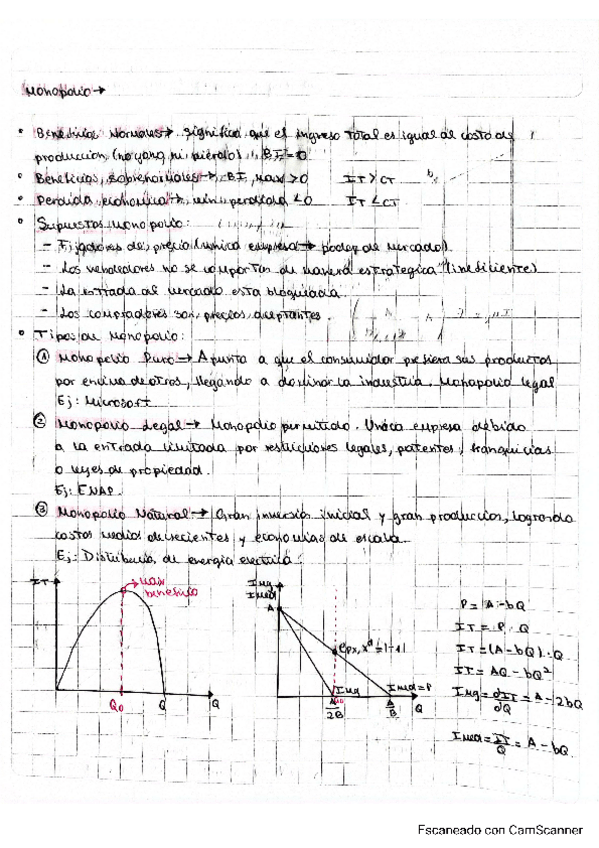 Monopolio →
• Beneficios Normales → significa que el ingreso total es igual al costo de
producción (no gano, ni pierdo), BE = 0
• Beneficios sobrenormales → BE, max > 0 IT > CT
• Perdida economica → min perdida < 0 IT < CT
• Supuestos Monopolio:
- Fijadores de precio (unica empresa → poder de mercado).
- Los vendedores no se comportan de manera estrategica (ineficiente)
- La entrada al mercado esta bloqueada.
- Los compradores son precios aceptantes.
• Tipos de Monopolio:
① Monopolio Puro → Apunta a que el consumidor prefiera sus productos
por encima de otros, llegando a dominar la industria. Monopolio legal
Ej: Microsoft
② Monopolio Legal → Monopolio permitido. Unica empresa debido
a la entrada limitada por restricciones legales, patentes, franquicias
o leyes de propiedad.
Ej: ENAP.
③ Monopolio Natural → Gran inversion inicial y gran produccion, logrando
costos medios decrecientes y economias de escala.
Ej: Distribucion de energia electrica.
IT
max
beneficio
Q0
Q
Q
Img
Imed
A
Img
Imed = P
A/2B
A/B
Q
P = A - bQ
IT = P · Q
IT = (A - bQ) · Q
IT = AQ - bQ²
Img = dIT/dQ = A - 2bQ
Imed = IT/Q = A - bQ
Escaneado con CamScanner